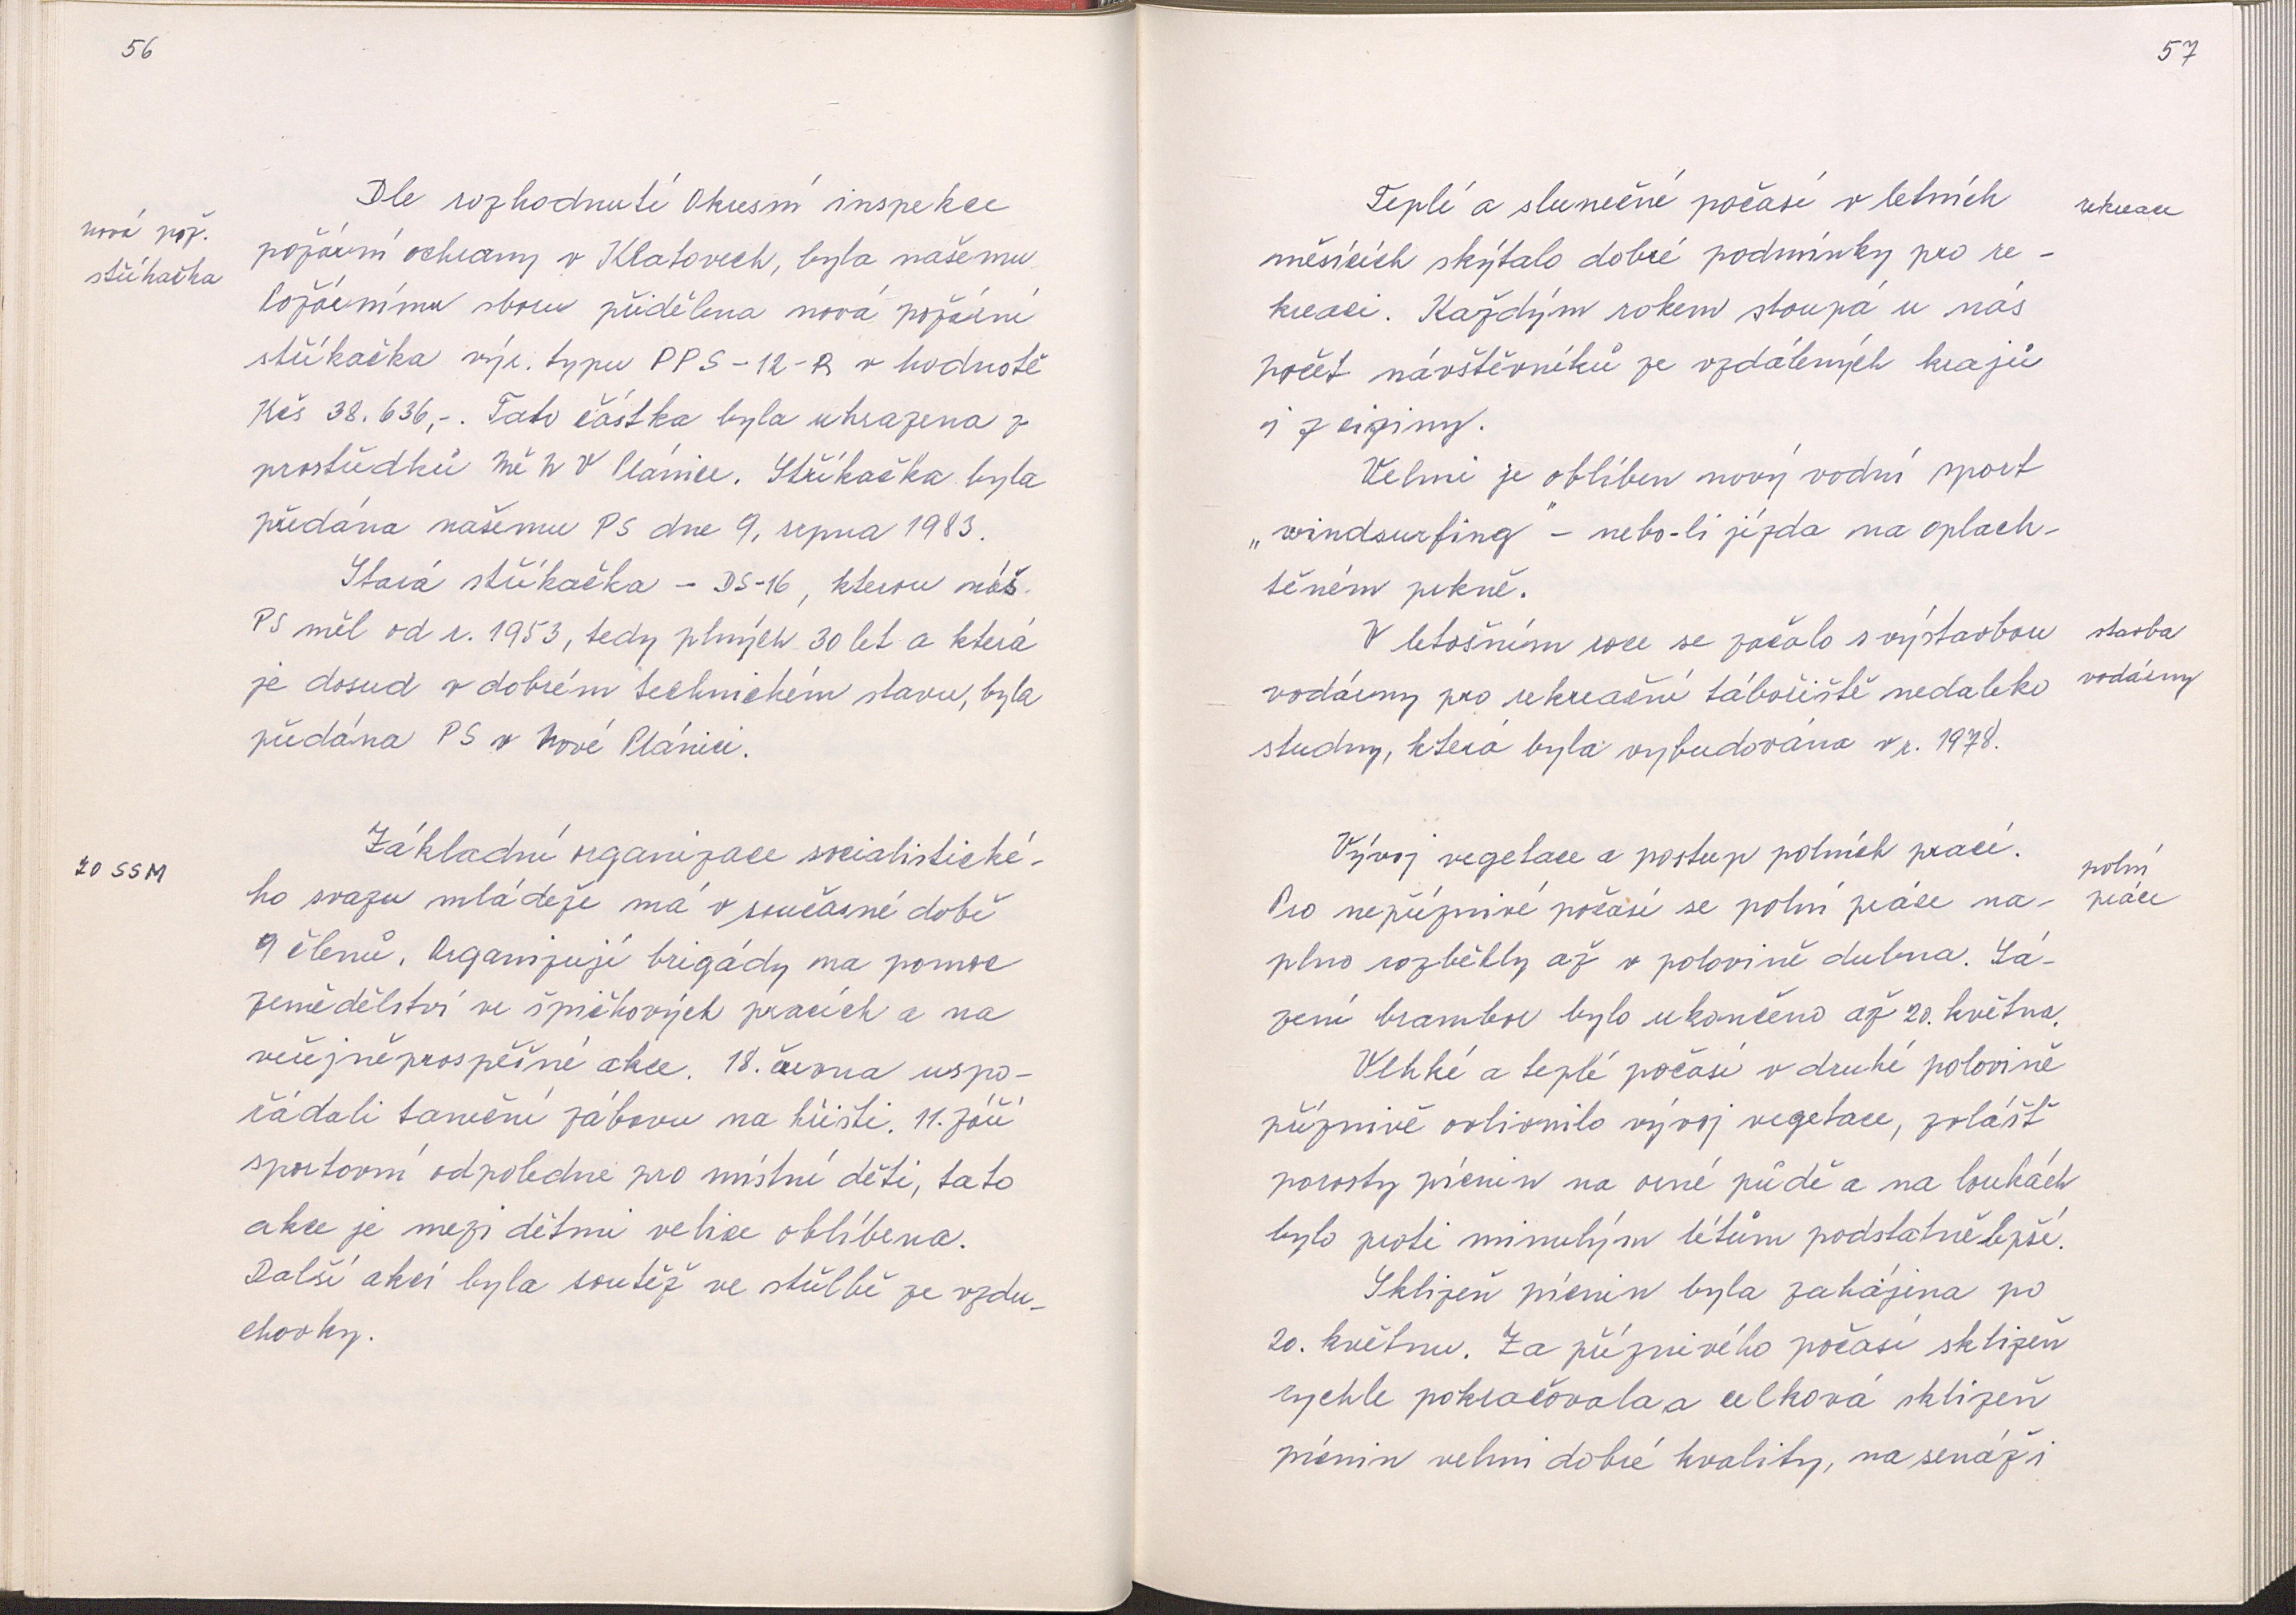 56
nová pož.
stříkačka
Dle rozhodnutí Okresní inspekce
požární ochrany v Klatovech, byla našemu
Požárnímu sboru přidělena nová požární
stříkačka výr. typu PPS-12-R v hodnotě
Kčs 38.636,-. Tato částka byla uhrazena z
prostředků MěNV Plánice. Stříkačka byla
předána našemu PS dne 9. srpna 1983.
Stará stříkačka - DS-16, kterou náš
PS měl od r. 1953, tedy plných 30 let a která
je dosud v dobrém technickém stavu, byla
předána PS v Nové Plánici.
ZO SSM
Základní organizace socialistické-
ho svazu mládeže má v současné době
9 členů. Organizují brigády na pomoc
zemědělství ve špičkových pracích a na
veřejněprospěšné akce. 18. června uspo-
řádali taneční zábavu na hřišti. 11. září
sportovní odpoledne pro místní děti, tato
akce je mezi dětmi velice oblíbena.
Další akcí byla soutěž ve střelbě ze vzdu-
chovky.
57
Teplé a slunečné počasí v letních
rekreace
měsících skýtalo dobré podmínky pro re-
kreaci. Každým rokem stoupá u nás
počet návštěvníků ze vzdálených krajů
i z ciziny.
Velmi je oblíben nový vodní sport
„windsurfing" - nebo-li jízda na oplach-
těném prkně.
V letošním roce se začalo s výstavbou
stavba
vodárny
vodárny pro rekreační tábořiště nedaleko
studny, která byla vybudována v r. 1978.
Vývoj vegetace a postup polních prací.
polní
práce
Pro nepříznivé počasí se polní práce na-
plno rozběhly až v polovině dubna. Sá-
zení brambor bylo ukončeno až 20. května.
Vlhké a teplé počasí v druhé polovině
příznivě ovlivnilo vývoj vegetace, zvlášť
porosty pícnin na orné půdě a na loukách
bylo proti minulým létům podstatně lepší.
Sklizeň pícnin byla zahájena po
20. květnu. Za příznivého počasí sklizeň
rychle pokračovala a celková sklizeň
pícnin velmi dobré kvality, na senáži